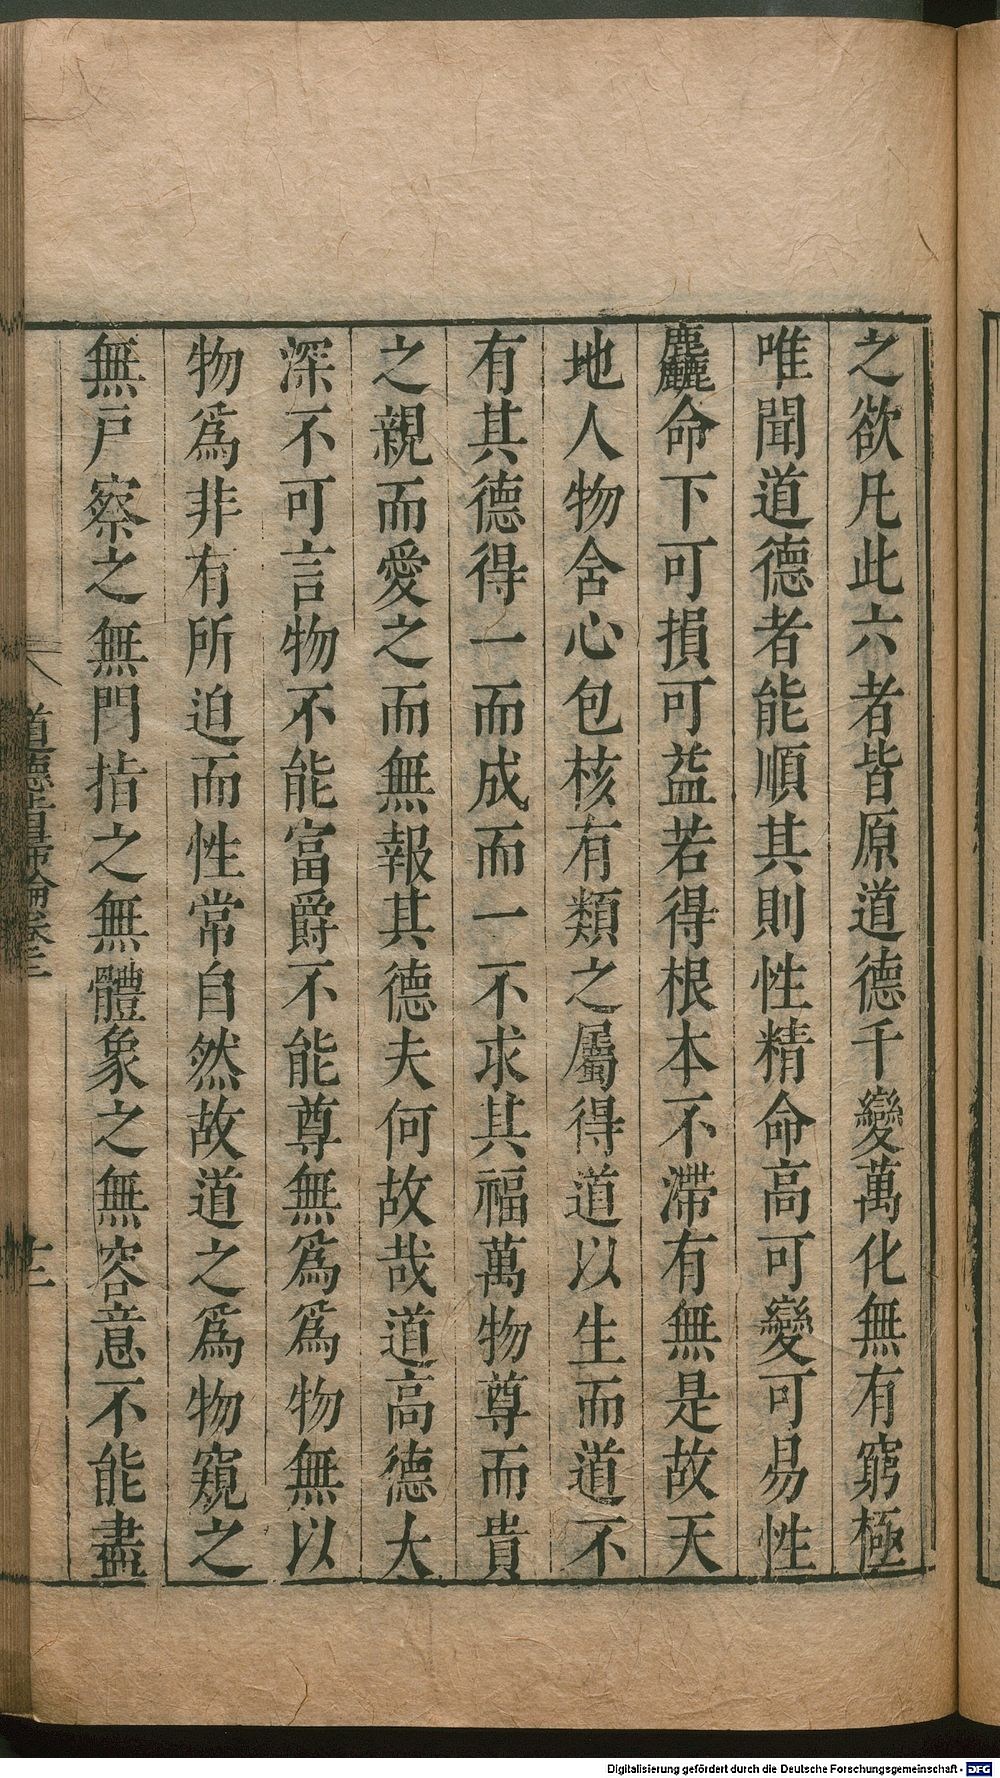 之欲凡此六者皆原道德千變萬化無有窮極
唯聞道德者能順其則性精命高可變可易性
麤命下可損可益若得根本不滯有無是故天
地人物含心包核有類之屬得道以生而道不
有其德得一而成而一不求其福萬物尊而貴
之親而愛之而無報其德夫何故哉道高德大
深不可言物不能富爵不能尊無爲爲物無以
物爲非有所迫而性常自然故道之爲物窺之
無戸察之無門指之無體象之無容意不能盡
道德指歸論卷三
十二
Digitalisierung gefördert durch die Deutsche Forschungsgemeinschaft - DFG